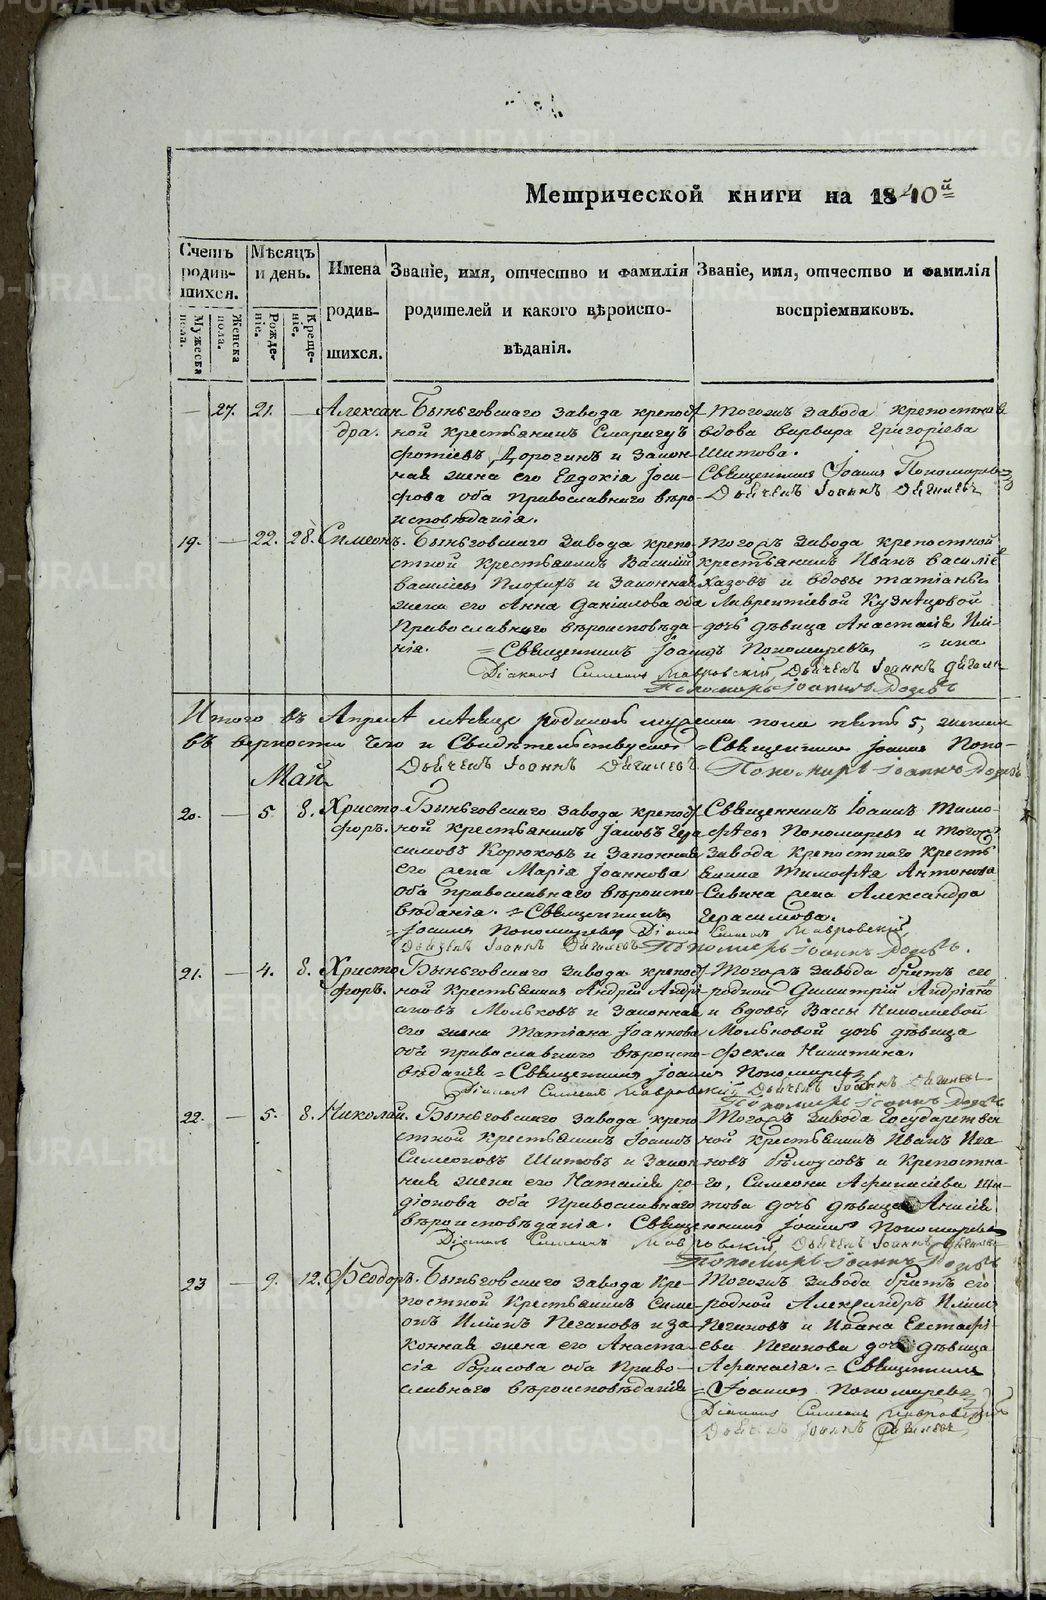 METRIKI.GASO-URAL.RU
Метрической книги на 1840й
Счетъ родив-шихся.
Мужеска пола.
Женска пола.
Мѣсяцъ и день.
Рожде-ніе.
Креще-ніе.
Имена родив-шихся.
Званіе, имя, отчество и фамилія
родителей и какого вѣроиспо-
вѣданія.
Званіе, имя, отчество и фамилія
воспріемниковъ.
— 27. 21. — Алексан-
дра.
Быньговскаго завода крепост-
ной крестьянинъ
Фотіевъ Дорогинъ и закон-
ная жена его Евдокія Іоси-
фова оба православнаго вѣро-
исповѣданія.
Тогожъ завода крепостная
вдова варвара Григоріева
Шитова.
Священникъ Іоаннъ Пономаревъ
Дьячекъ Іоаннъ
19. — 22. 28. Симеонъ.
Быньговскаго завода крепо-
стной крестьянинъ Василій
васильевъ и законная
жена его Анна Даніилова оба
Православнаго вѣроисповѣда-
нія.
Тогожъ завода крепостной
крестьянинъ Иванъ василіе
Хазовъ и вдовы татіаны
Лаврентіевой Кузнѣцовой
дочь дѣвица Анастасія Илі-
ина
= Священникъ Іоаннъ Пономаревъ
Діаконъ Симеонъ Мавровскій, Дьячекъ Іоаннъ
Пономарь Іоаннъ
Итого въ Апрелѣ мѣсяце родилось мужеска пола пять 5, женска
въ верности чего и Свидѣтельствуемъ = Священникъ Іоаннъ Поно-
Дьячекъ Іоаннъ
Пономарь Іоаннъ
Май
20. — 5. 8. Христо-
форъ.
Быньговскаго завода крепост-
ной крестьянинъ Іаковъ Гера
симовъ Корюковъ и Законная
его жена Марія Іоаннова
оба православнаго вѣроиспо-
вѣданія. = Священникъ
= Іоаннъ Пономаревъ Діаконъ Симеонъ Мавровскій
Дьячекъ Іоаннъ Пономарь Іоаннъ
Священникъ Іоаннъ Тимо-
фѣевъ Пономаревъ и тогожъ
завода крепостнаго кресть
янина Тимофѣя Антонова
Савина жена Александра
Герасимова.
21. — 4. 8. Христо
форъ.
Быньговскаго завода крепост-
ной крестьянинъ Андрій Андрі
ановъ Мольковъ и законная
его жена Татіана Іоаннова
оба православнаго вѣроиспо-
вѣданія = Священникъ Іоаннъ Пономаревъ
Тогожъ завода братъ его
родной Димитрій Андріано
и вдовы Вассы Николаевой
Мольковой дочь дѣвица
Фекла Никитина.
Діаконъ Симеонъ Мавровскій Дьячекъ Іоаннъ
Пономарь Іоаннъ
22. — 5. 8. Николай.
Быньговскаго завода крепо
стной крестьянинъ Іоаннъ
Симеоновъ Шитовъ и закон
ная жена его Наталія ро-
діонова оба Православнаго
вѣроисповѣданія. Священникъ Іоаннъ Пономаревъ
Тогожъ завода Государствен
ной крестьянинъ Иванъ Ива
новъ бѣлоусовъ и Крепостна-
го, Симеона Афанасіева Ши-
това дочь дѣвица Анисія
Діаконъ Симеонъ Мавровскій, Дьячекъ Іоаннъ
Пономарь Іоаннъ
23 — 9. 12. Феодоръ.
Быньговскаго завода Кре-
постной Крестьянинъ Симе-
онъ Ильинъ Пегановъ и за-
конная жена его Анаста-
сія борисова оба Право-
славнаго вѣроисповѣданія
Тогожъ завода братъ его
родной Александръ Ильинъ
Пегановъ и Ивана Евстафі-
ева Пеганова дочь дѣвица
Афанасія. = Священникъ
= Іоаннъ Пономаревъ
Діаконъ Симеонъ Мавровскій
Дьячекъ Іоаннъ